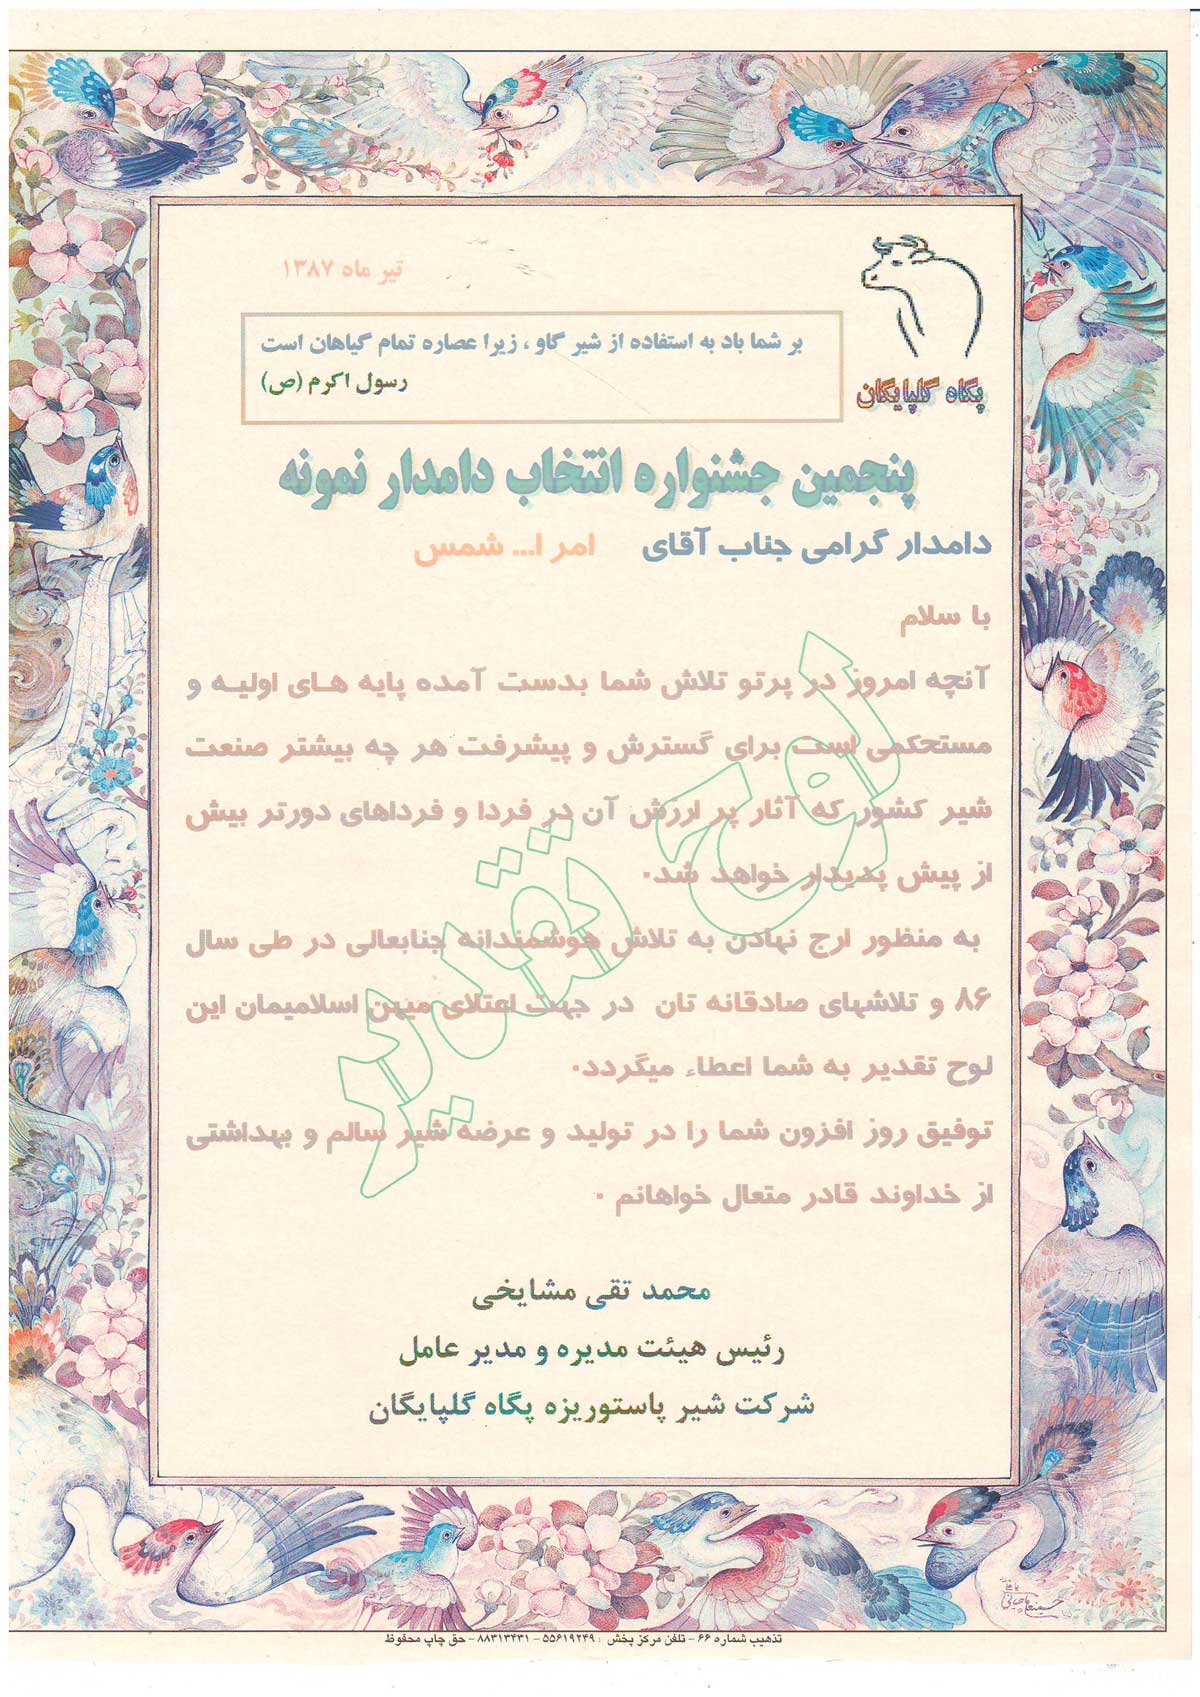 تیر ماه ۱۳۸۷
بر شما باد به استفاده از شیر گاو ، زیرا عصاره تمام گیاهان است
رسول اکرم (ص)
پگاه گلپایگان
پنجمین جشنواره انتخاب دامدار نمونه
دامدار گرامی جناب آقای امر ا... شمس
با سلام
آنچه امروز در پرتو تلاش شما بدست آمده پایه های اولیه و
مستحکمی است برای گسترش و پیشرفت هر چه بیشتر صنعت
شیر کشور که آثار پر ارزش آن در فردا و فرداهای دورتر بیش
از پیش پدیدار خواهد شد.
به منظور ارج نهادن به تلاش هوشمندانه جنابعالی در طی سال
۸۶ و تلاشهای صادقانه تان در جهت اعتلای میهن اسلامیمان این
لوح تقدیر به شما اعطاء میگردد.
توفیق روز افزون شما را در تولید و عرضه شیر سالم و بهداشتی
از خداوند قادر متعال خواهانم .
لوح تقدیر
محمد تقی مشایخی
رئیس هیئت مدیره و مدیر عامل
شرکت شیر پاستوریزه پگاه گلپایگان
تذهیب شماره ۶۶ - تلفن مرکز پخش : ۵۵۶۱۹۲۴۹ - ۸۸۳۱۳۴۳۱ - حق چاپ محفوظ